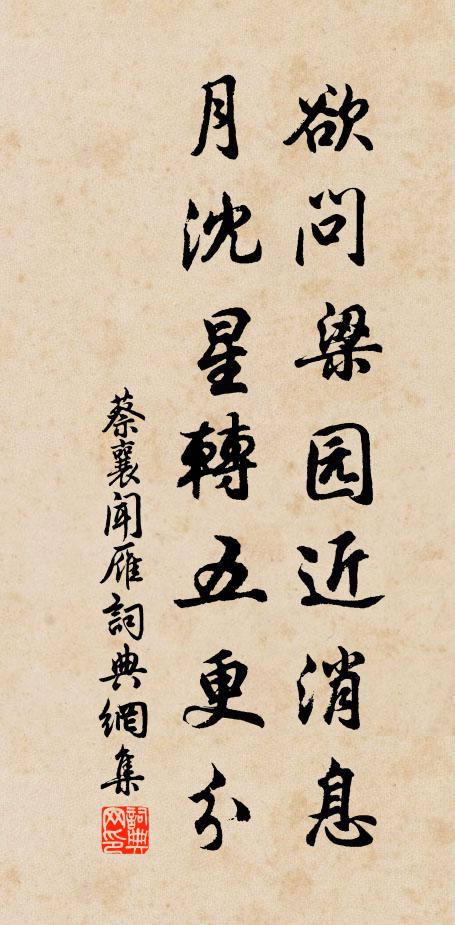 欲问梁园近消息
月沈星轉五更分
蔡襄闻雁詞典網集
詞典网印